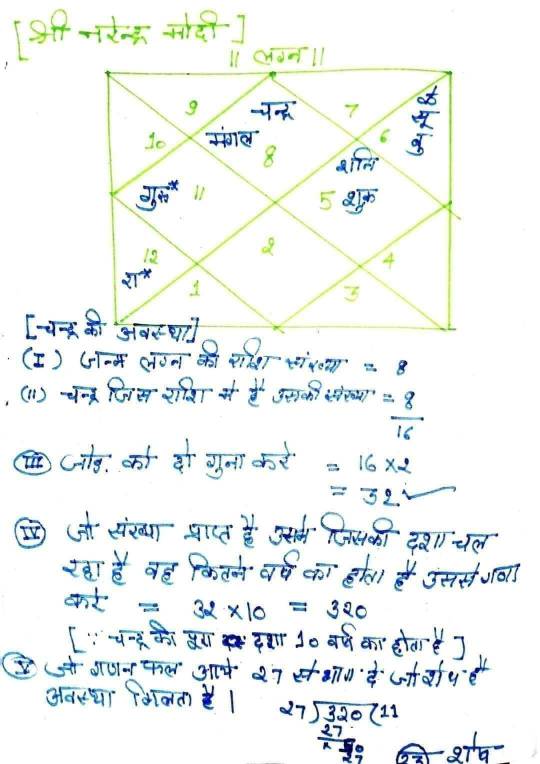 [श्री नरेन्द्र मोदी]
|| लग्न ||
9
चन्द्र
7
10
मंगल
8
6
के सू बु
शनि
गुरु* 11
5 शुक्र
2
12
4
रा*
1
3
[चन्द्र की अवस्था]
(I) जन्म लग्न की राशि संख्या = 8
(II) चन्द्र जिस राशि में है उसकी संख्या = 8
16
(III) जोड़. को दो गुना करे = 16 × 2
= 32
(IV) जो संख्या प्राप्त है उसमे जिसकी दशा चल
रहा है वह कितने वर्ष का होता है उससे गुणा
करे = 32 × 10 = 320
[∵ चन्द्र की दशा 10 वर्ष का होता है]
(V) जो गणनफल आये 27 से भाग दे जो शेष है
अवस्था मिलता है |
27)320(11
27
50
27
23 शेष